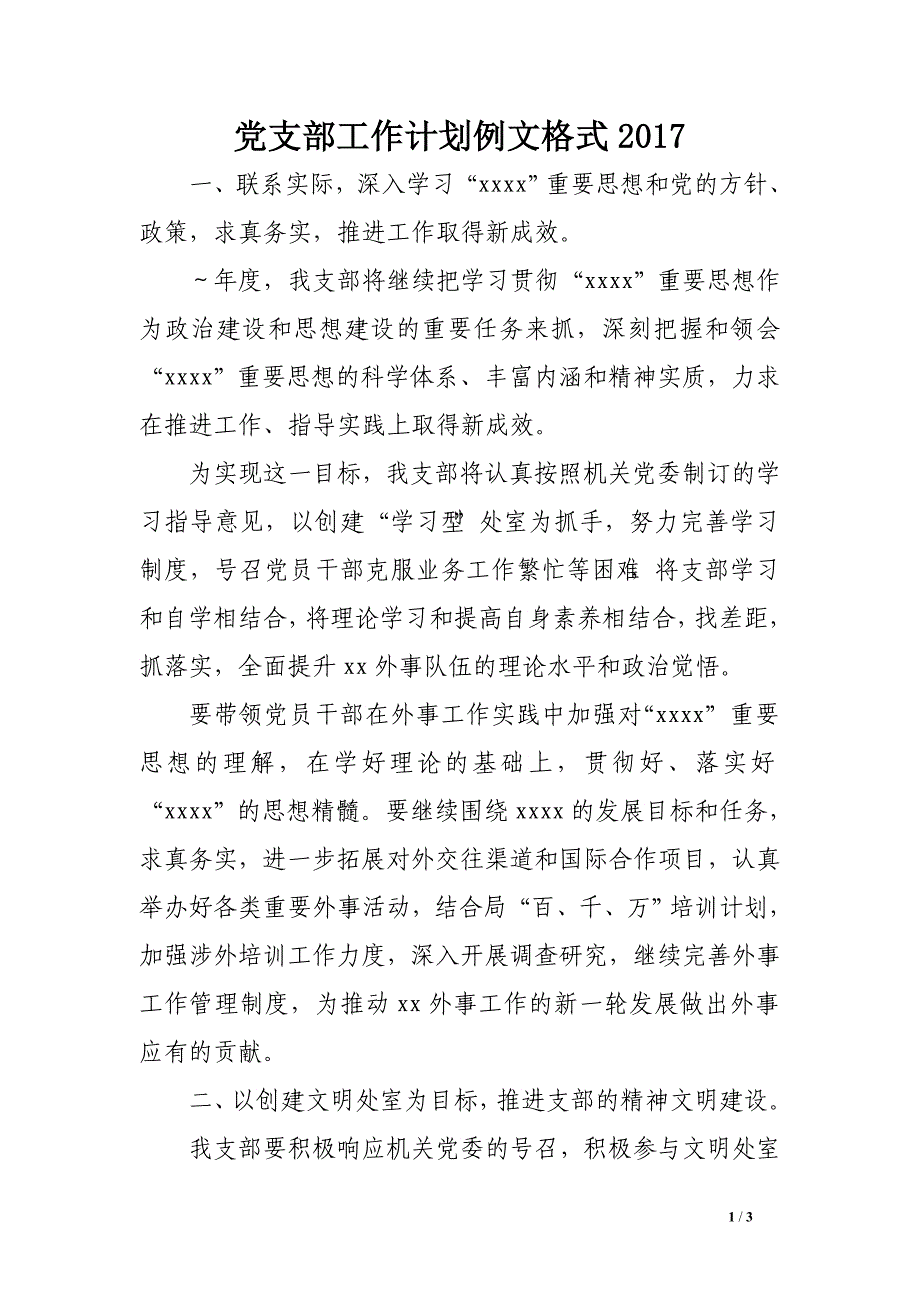 党支部工作计划例文格式 2017
一、联系实际，深入学习“xxxx”重要思想和党的方针、
政策，求真务实，推进工作取得新成效。
～年度，我支部将继续把学习贯彻“xxxx”重要思想作
为政治建设和思想建设的重要任务来抓，深刻把握和领会
“xxxx”重要思想的科学体系、丰富内涵和精神实质，力求
在推进工作、指导实践上取得新成效。
为实现这一目标，我支部将认真按照机关党委制订的学
习指导意见，以创建“学习型”处室为抓手，努力完善学习
制度，号召党员干部克服业务工作繁忙等困难，将支部学习
和自学相结合，将理论学习和提高自身素养相结合，找差距，
抓落实，全面提升 xx 外事队伍的理论水平和政治觉悟。
要带领党员干部在外事工作实践中加强对“xxxx”重要
思想的理解，在学好理论的基础上，贯彻好、落实好
“xxxx”的思想精髓。要继续围绕 xxxx 的发展目标和任务，
求真务实，进一步拓展对外交往渠道和国际合作项目，认真
举办好各类重要外事活动，结合局“百、千、万”培训计划，
加强涉外培训工作力度，深入开展调查研究，继续完善外事
工作管理制度，为推动 xx 外事工作的新一轮发展做出外事
应有的贡献。
二、以创建文明处室为目标，推进支部的精神文明建设。
我支部要积极响应机关党委的号召，积极参与文明处室
1 / 3